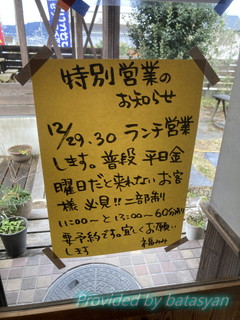 特別営業の
お知らせ
12/29.30 ランチ営業
します。普段 平日金
曜日だと来れないお客
様 必見!! 二部制
11:00〜と13:00〜60分制
要予約です。宜しくお願い
します
Provided by batasyan